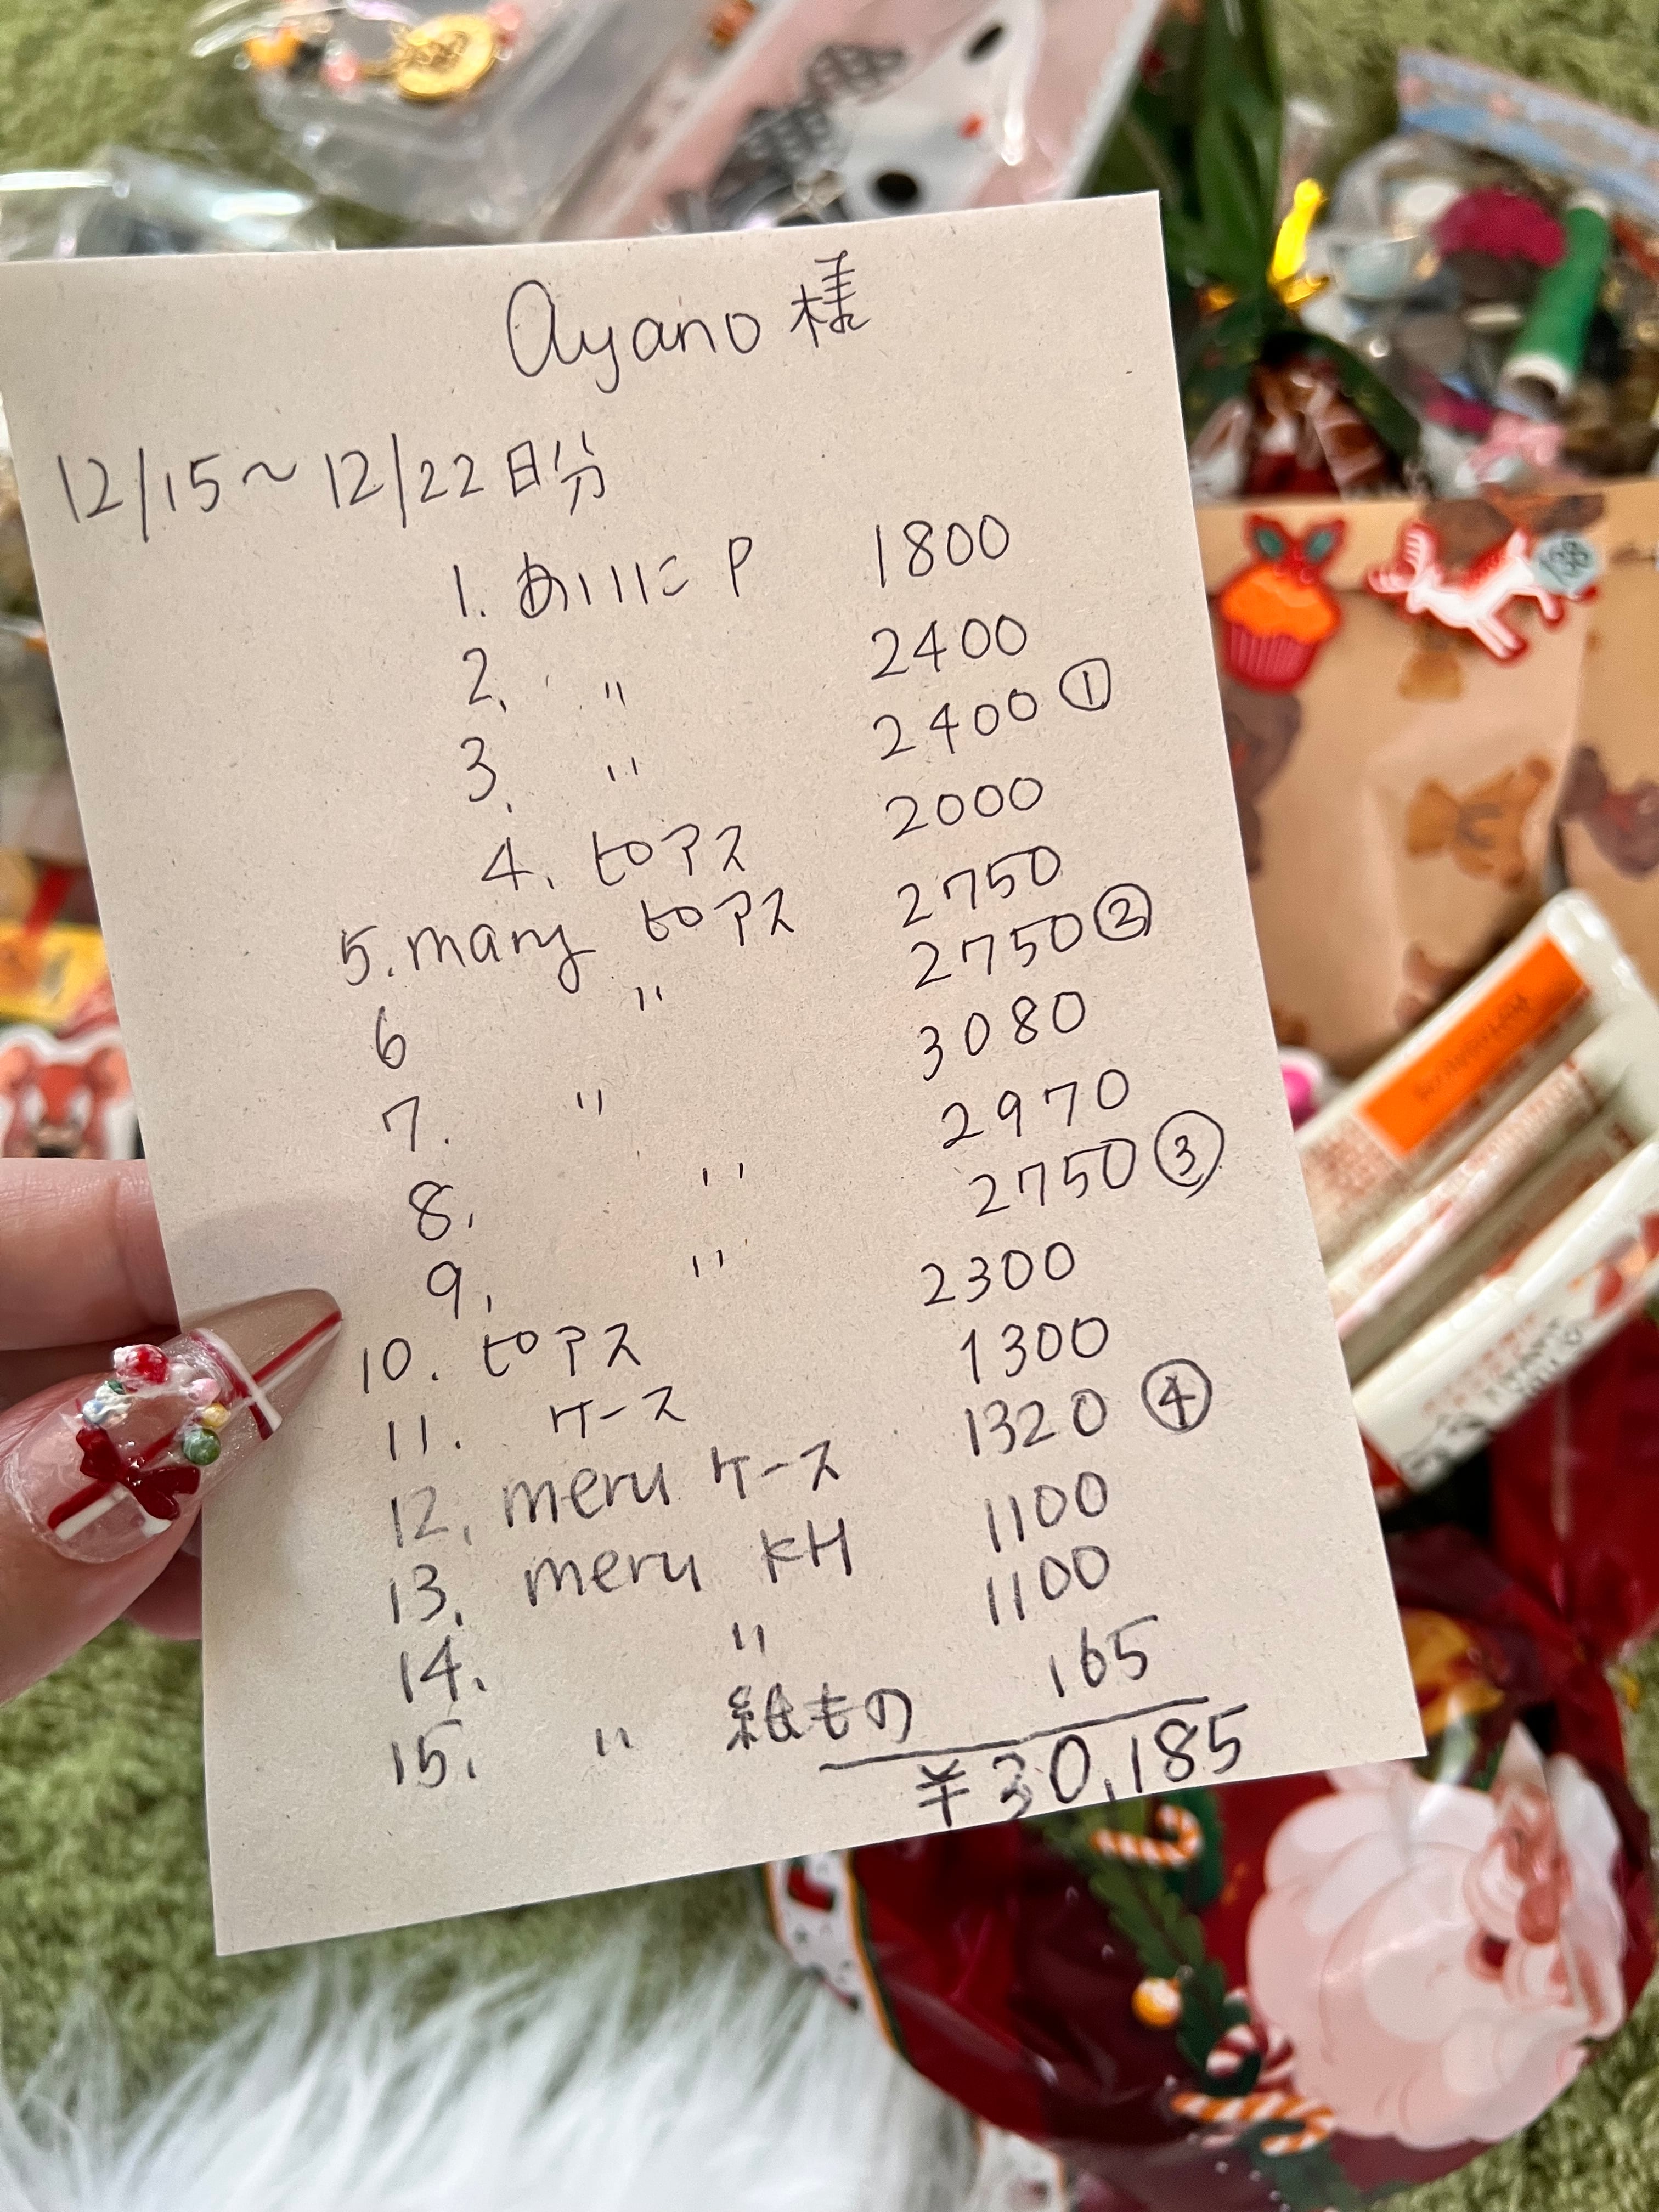 Ayano 様
12/15〜12/22日分
1. あいいに P 1800
2. 〃 2400
3. 〃 2400 ①
4. ピアス 2000
5. many ピアス 2750
6 〃 2750 ②
7. 〃 3080
8. 〃 2970
9. 〃 2750 ③
10. ピアス 2300
11. ケース 1300
12. meru ケース 1320 ④
13. meru KH 1100
14. 〃 1100
15. 〃 紙もの 165
¥30,185
138